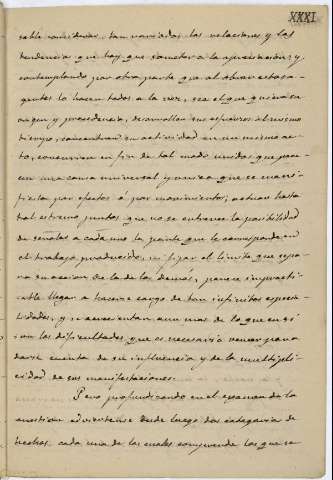 XXXI
sable considerar, tan variadas las relaciones y las
tendencias que hay que someter a la apreciacion; y
contemplando por otra parte que al obrar estos a-
gentes lo hacen todos a la vez, sea el que quiera su
origen y procedencia, desarrollan sus esfuerzos al mismo
tiempo, concentran su actividad en un mismo ac-
to, concurren en fin de tal modo unidos que pare-
cen una causa universal y unica que se mani-
fiesta por efectos ó por movimientos; actuan hasta
tal estremo juntos que no se entrevee la posibilidad
de señalar a cada uno la parte que le corresponde en
el trabajo producido, ni fijar el limite que sepa-
ra su accion de la de los demás, parece impracti-
cable llegar a hacerse cargo de tan infinitas especia-
lidades, y se acrecientan aun mas de lo que en si
son las dificultades que es necesario vencer para
darse cuenta de su influencia y de la multipli-
cidad de sus manifestaciones.
Pero profundizando en el examen de la
cuestion adviertense desde luego dos categorias de
hechos, cada una de las cuales comprende los que se